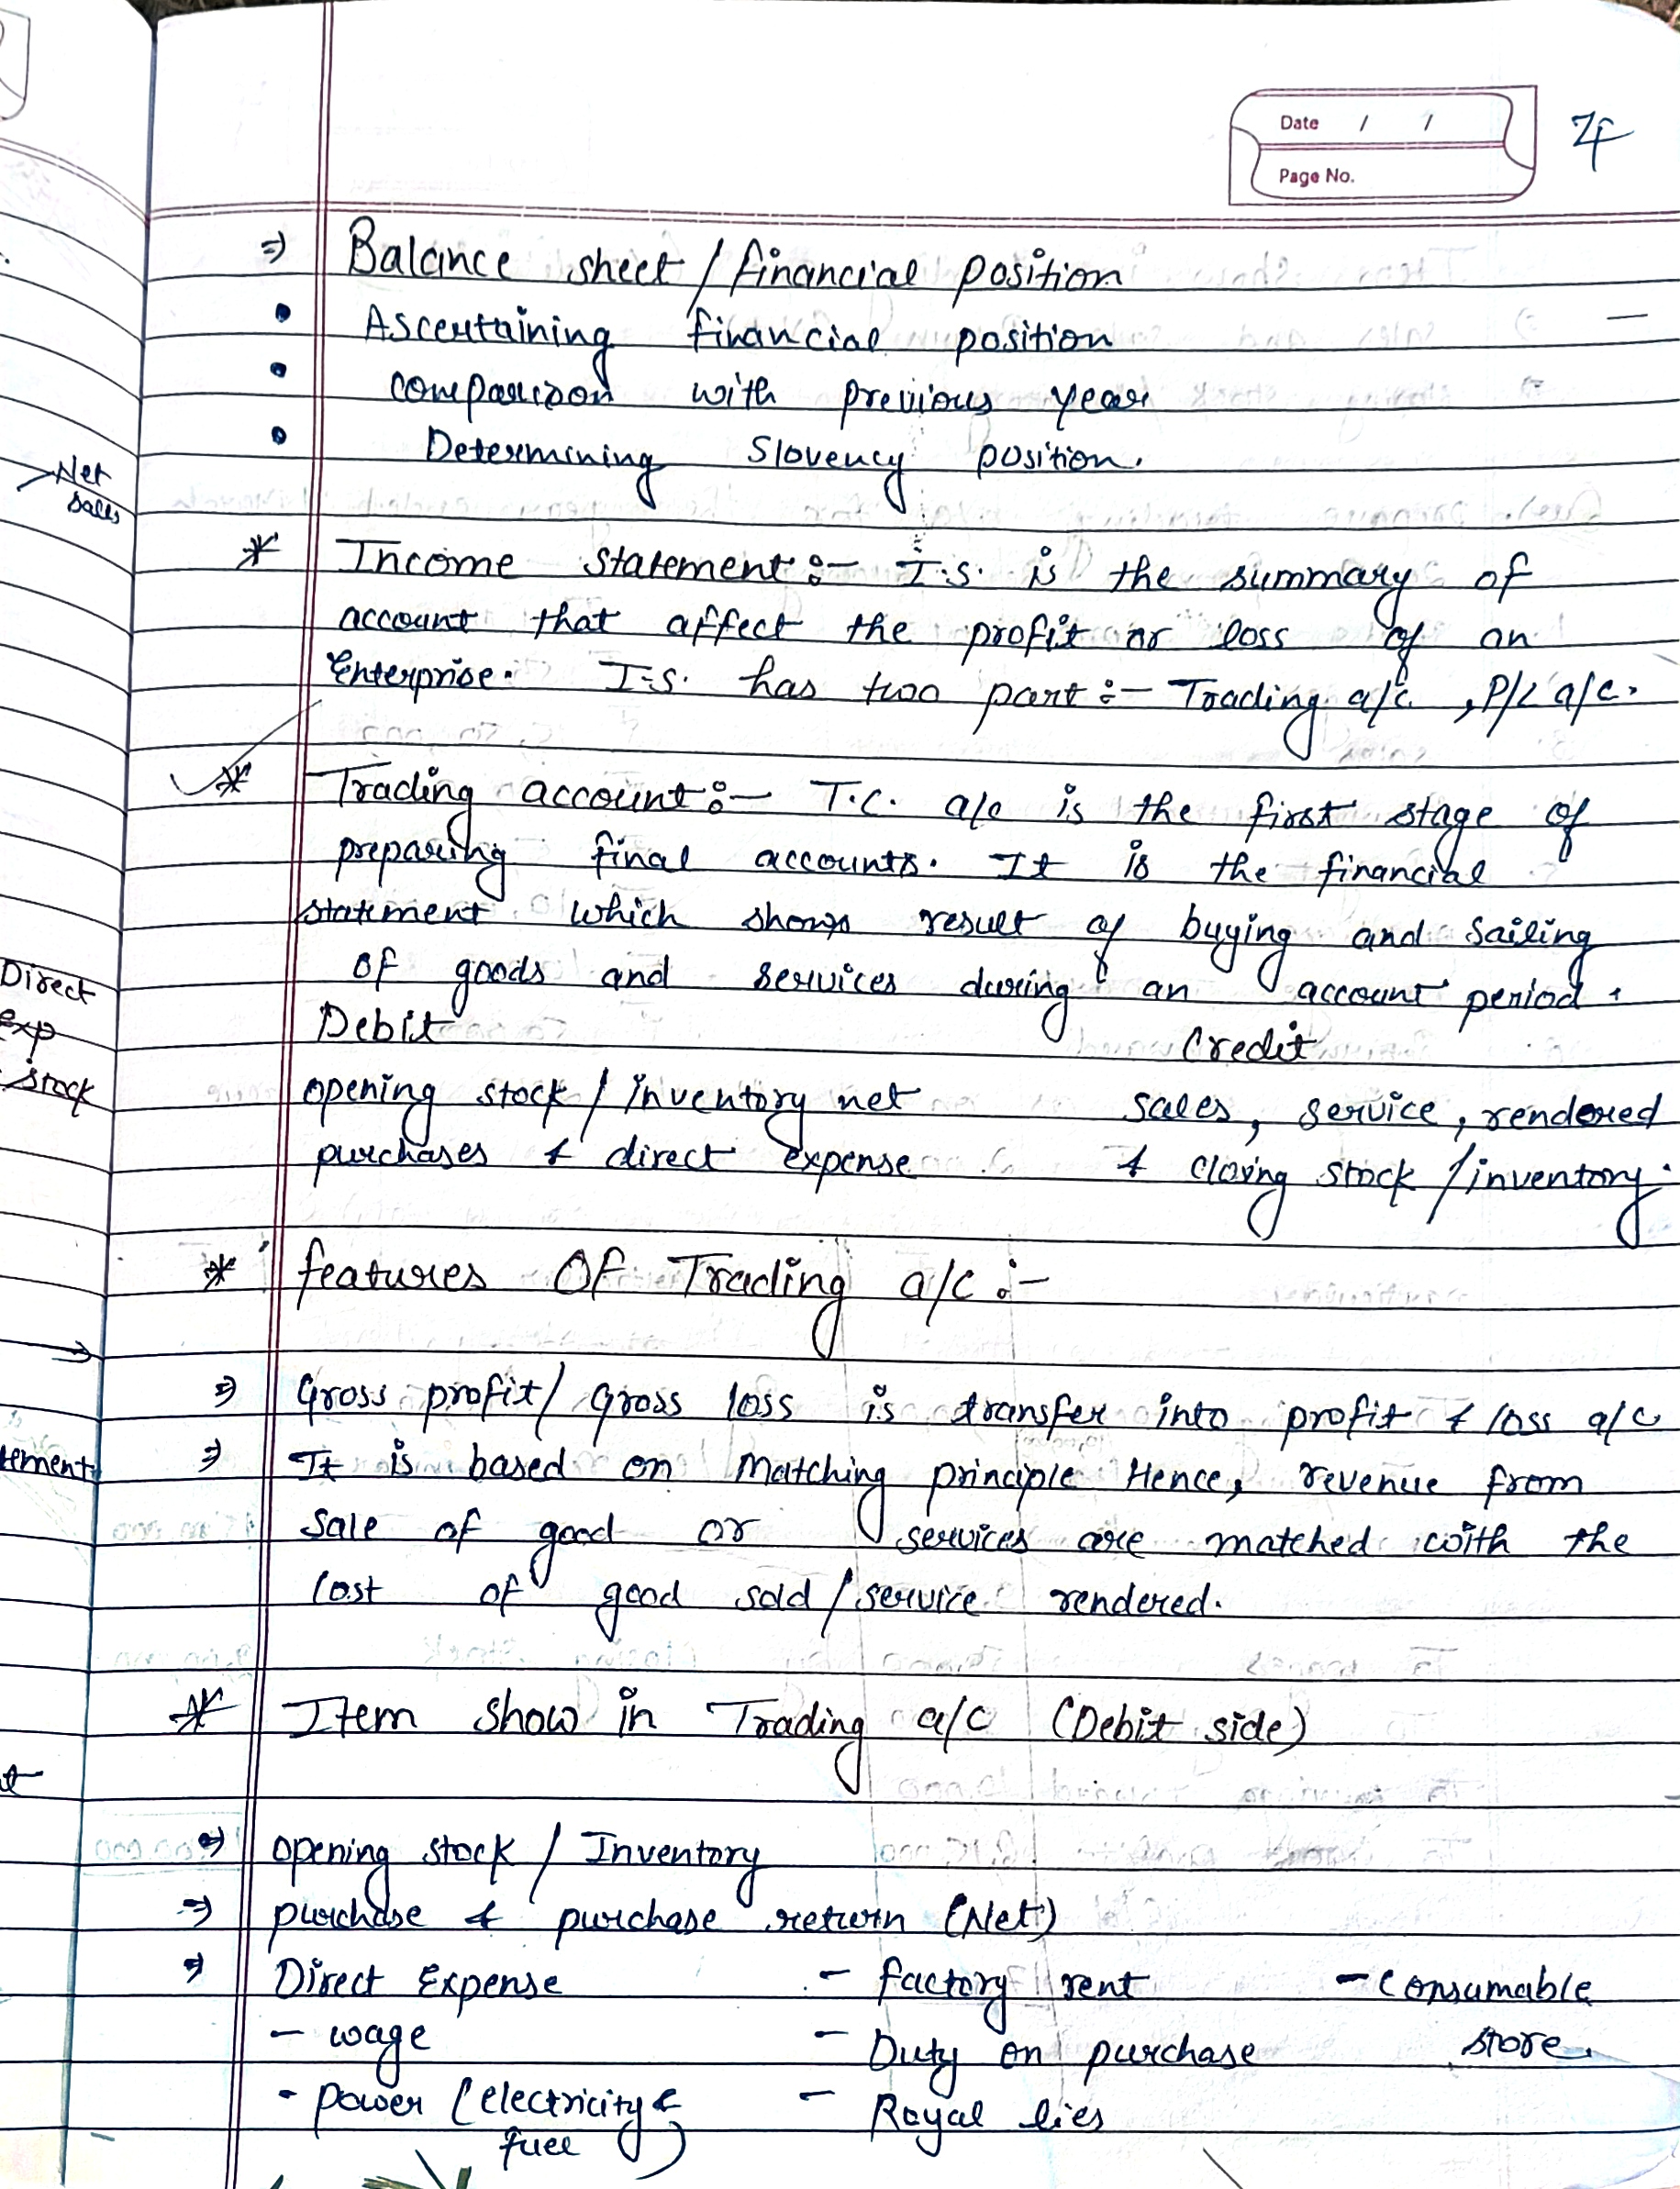 Date / /
Page No.
⇒ Balance sheet / financial position
• Ascertaining financial position
• comparison with previous year
• Determining Slovency position.
Net
sales
* Income Statement :- I.S. is the summary of
account that affect the profit or loss of an
Enterprise. I.S. has two part :- Trading a/c , P/L a/c.
* Trading account :- T.C. a/c is the first stage of
preparing final accounts. It is the financial
statement which shows result of buying and Sailing
of goods and services during an account period.
Direct
exp
stock
Debit Credit
opening stock / inventory net sales, service, rendered
purchases & direct expense & closing stock / inventory.
* features Of Trading a/c :-
⇒ Gross profit / gross loss is transfer into profit & loss a/c
⇒ It is based on Matching principle Hence, revenue from
tement
Sale of good or services are matched with the
Cost of good sold / service rendered.
* Item show in Trading a/c (Debit side)
⇒ opening stock / Inventory
⇒ purchase & purchase return (Net)
⇒ Direct Expense - factory rent - consumable
- wage - Duty on purchase store
- power (electricity & - Royal lies
fuel)